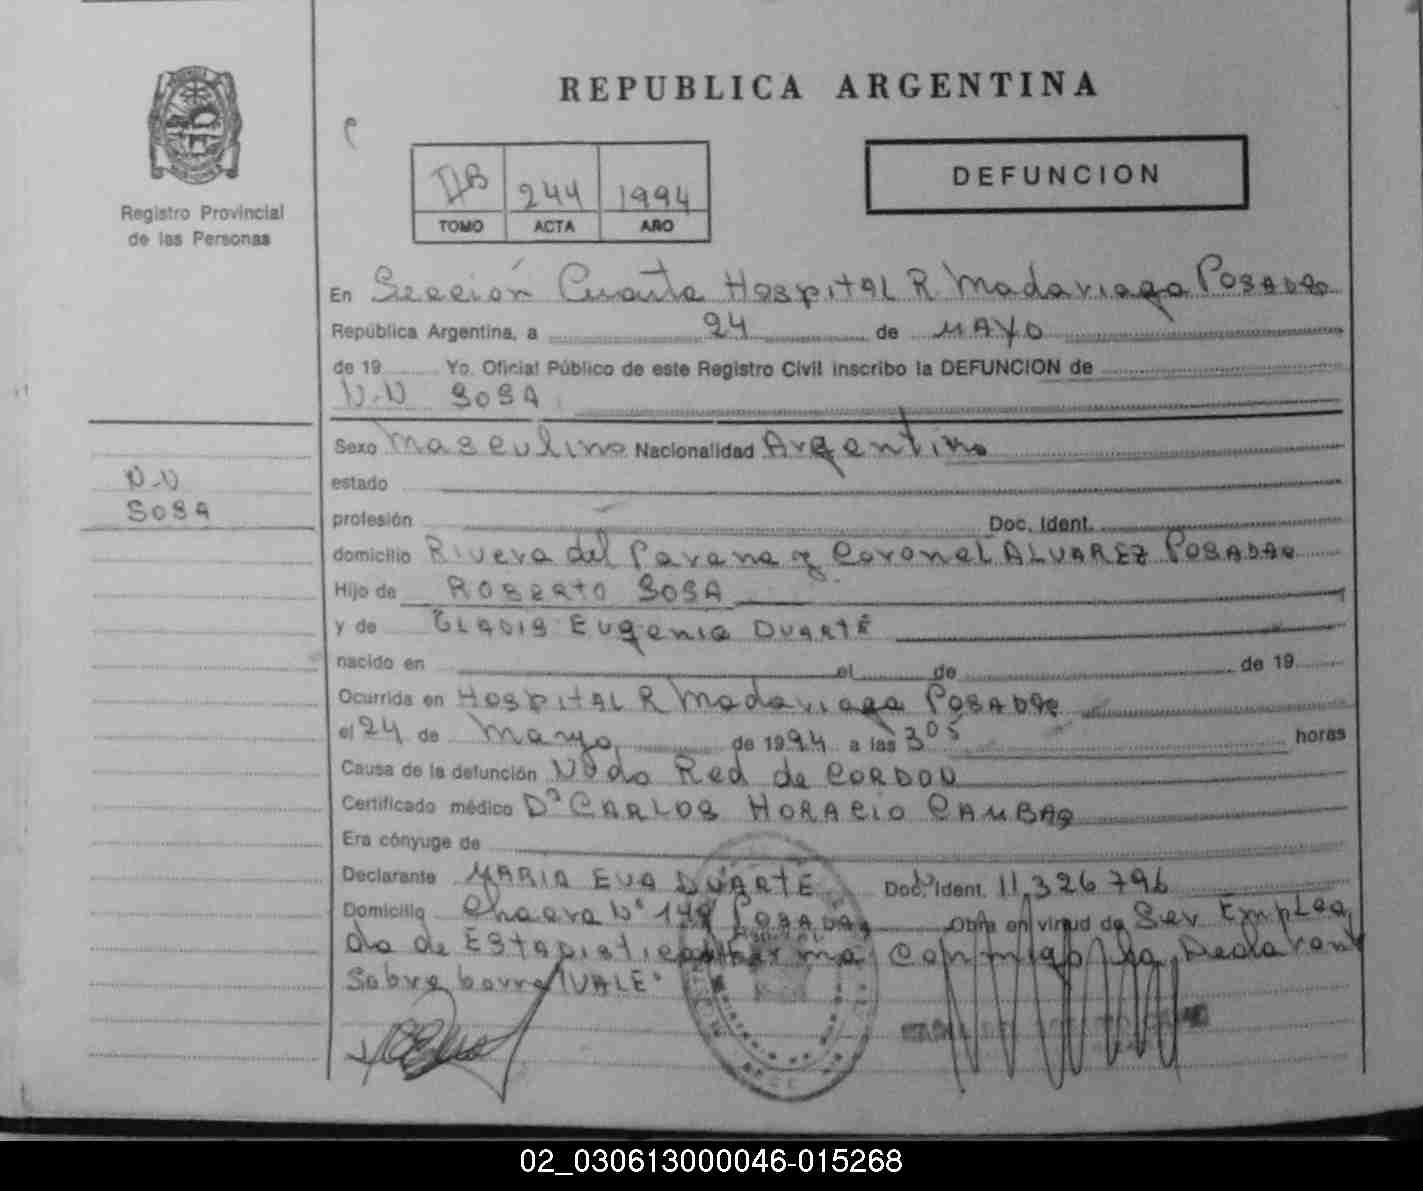 REPUBLICA ARGENTINA
Registro Provincial
de las Personas
244 1994
TOMO ACTA AÑO
DEFUNCION
En Sección Cuarta Hospital R. Madariaga Posadas
República Argentina, a 24 de MAYO
de 19 Yo. Oficial Público de este Registro Civil inscribo la DEFUNCION de
N.N SOSA
Sexo Masculino Nacionalidad Argentino
estado
N.N
SOSA
profesión Doc. Ident.
domicilio Rivera del Parana y Coronel ALVAREZ POSADAS
Hijo de ROBERTO SOSA
y de GLADIS EUgenia DUARTE
nacido en el de de 19
Ocurrida en HOSPITAL R Madariaga POSADAS
el 24 de Mayo de 1994 a las 3 05 horas
Causa de la defunción Nudo Red de CORDON
Certificado médico Dr CARLOS HORACIO CAMBAS
Era cónyuge de
Declarante MARIA EVA DUARTE Doc. Ident. 11,326796
Domicilio Chacra Nº 148 POSADAS Obra en virtud de Ser Emplea
da de ESTADISTICA firma conmigo la Declarant
Sobre borra "VALE"
02_030613000046-015268